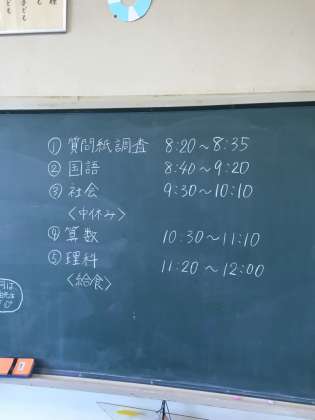 ① 質問紙調査 8:20～8:35
② 国語 8:40～9:20
③ 社会 9:30～10:10
〈中休み〉
④ 算数 10:30～11:10
⑤ 理科 11:20～12:00
〈給食〉